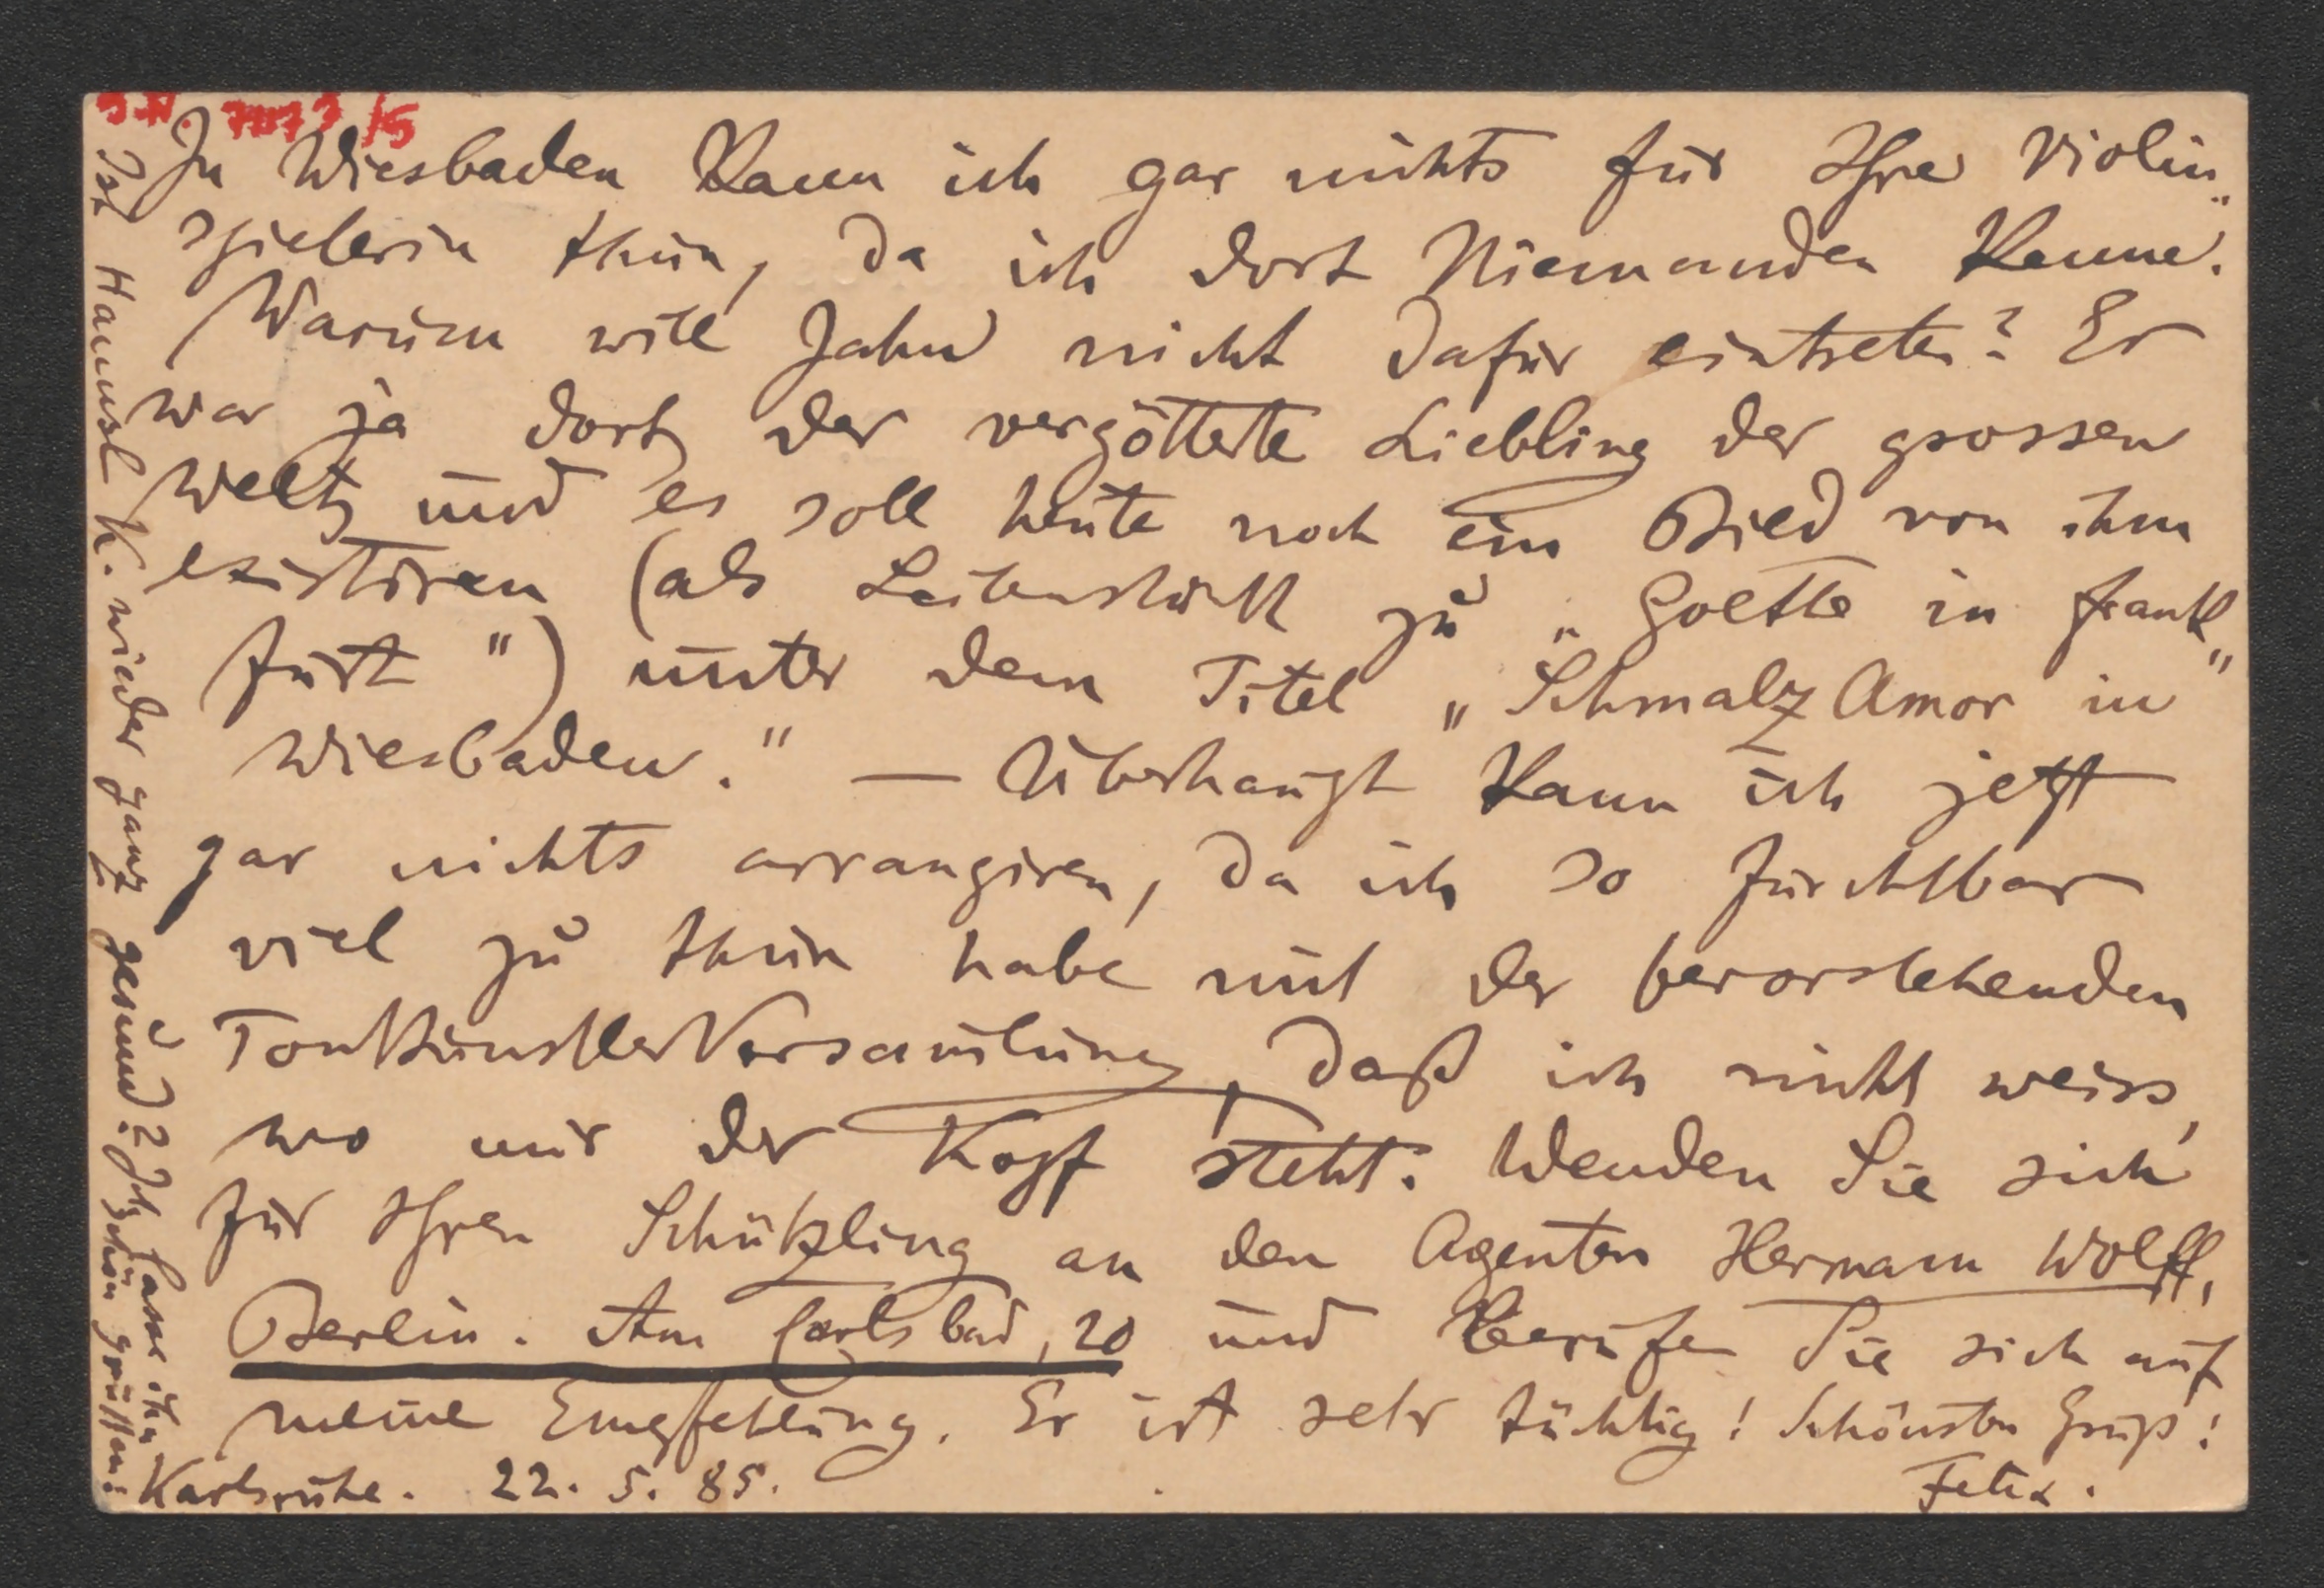 In Wiesbaden kann ich gar nichts für Ihre Violin„
spielerin thun, da ich dort Niemanden kenne.
Warum will Jahn nicht dafür eintreten? Er
war ja dort der vergötterte Liebling der grossen
Welt, und es soll heute noch ein Bild von ihm
existiren (als Seitenstück zu „Goethe in Frank„
furt") unter dem Titel „Schmalz Amor in"
Wiesbaden." — Überhaupt kann ich jetzt
gar nichts arrangiren, da ich so furchtbar
viel zu thun habe mit der bevorstehenden
TonkünstlerVersamlung, daß ich nicht weiss,
wo mir der Kopf steht. Wenden Sie sich
für Ihren Schützling an den Agenten Hermann Wolff,
Berlin. Am Carlsbad, 20 und berufen Sie sich auf
meine Empfehlung. Er ist sehr tüchtig! Schönsten Gruß!
Karlsruhe. 22. 5. 85. Felix.
Ist Hannsl K. wieder ganz gesund? Ich lasse ihn
schön grüssen!